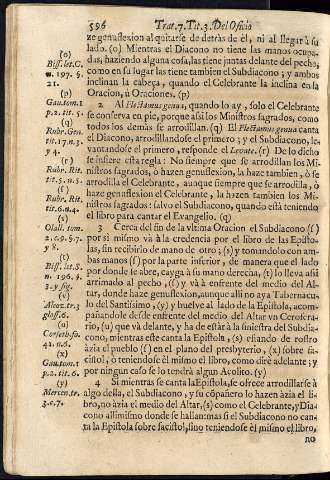 596 Trat. 7. Tit. 3. Del Oficio
ze genuflexion al quitarse de detràs de èl, ni al llegar à su
lado. (o) Mientras el Diacono no tiene las manos ocupa-
das, haziendo alguna cosa, las tiene juntas delante del pecho,
como en su lugar las tiene tambien el Subdiacono; y ambos
inclinan la cabeça, quando el Celebrante la inclina en la
Oracion, ù Oraciones. (p)
2 Al Flectamus genua, quando lo ay, solo el Celebrante
se conserva en pie, porque assi los Ministros sagrados, como
todos los demàs se arrodillan. (q) El Flectamus genua canta
el Diacono, arrodillandose el primero; y el Subdiacono, le-
vantandose el primero, responde el Levate. (r) De lo dicho
se infiere esta regla: No siempre que se arrodillan los Mi-
nistros sagrados, ò hazen genuflexion, la haze tambien, ò se
arrodilla el Celebrante, aunque siempre que se arrodilla, ò
haze genuflexion el Celebrante, la hazen tambien los Mi-
nistros sagrados: salvo el Subdiacono, quando està teniendo
el libro para cantar el Evangelio. (q)
3 Cerca del fin de la vltima Oracion el Subdiacono (s)
por si mismo và à la credencia por el libro de las Epistò-
las, sin recibirlo de mano de otro; (s) y tomandolo con am-
bas manos (s) por la parte inferior, de manera que el lado
por donde se abre, cayga à su mano derecha, (t) lo lleva assi
arrimado al pecho, (s) y và à enfrente del medio del Al-
tar, donde haze genuflexion, aunque alli no aya Tabernacu-
lo del Santissimo, (y) y buelve al lado de la Epistola, acom-
pañandole desde enfrente del medio del Altar vn Cerofera-
rio, (u) que và delante, y ha de estàr à la siniestra del Subdia-
cono, mientras este canta la Epistola, (s) estando de rostro
àzia el pueblo (s) en el plano del presbyterio, (x) sobre fa-
cistol, ò teniendose èl mismo el libro, como dirè adelante; y
por ningun caso se lo tendrà algun Acolito. (y)
4 Si mientras se canta la Epistola, se ofrece arrodillarse à
algo della, el Subdiacono, y su còpañero lo hazen àzia el li-
bro, no àzia el medio del Altar, (s) como el Celebrante, y Dia-
cono alli mismo donde se hallan: mas si el Subdiacono no can-
ta la Epistola sobre facistol, sino teniendose èl mismo el libro,
no
(o)
Biss. let. C.
n. 197. §.
21.
(p)
Gau. tom. 1
p. 2. tit. 5.
(q)
Rubr. Gen.
tit. 17. n. 3.
(r)
Rubr. Rit.
tit. 5. n. 5.
(s)
Rubr. Rit.
tit. 6. n. 4.
(s)
Olall. tom.
2. c. 9. §. 7.
(t)
Biss. let. S.
n. 196. §.
(u)
Corseth. fo.
(x)
Gau. tom. 1
p. 2. tit. 6.
(y)
Mercen. tr.
3. c. 7.